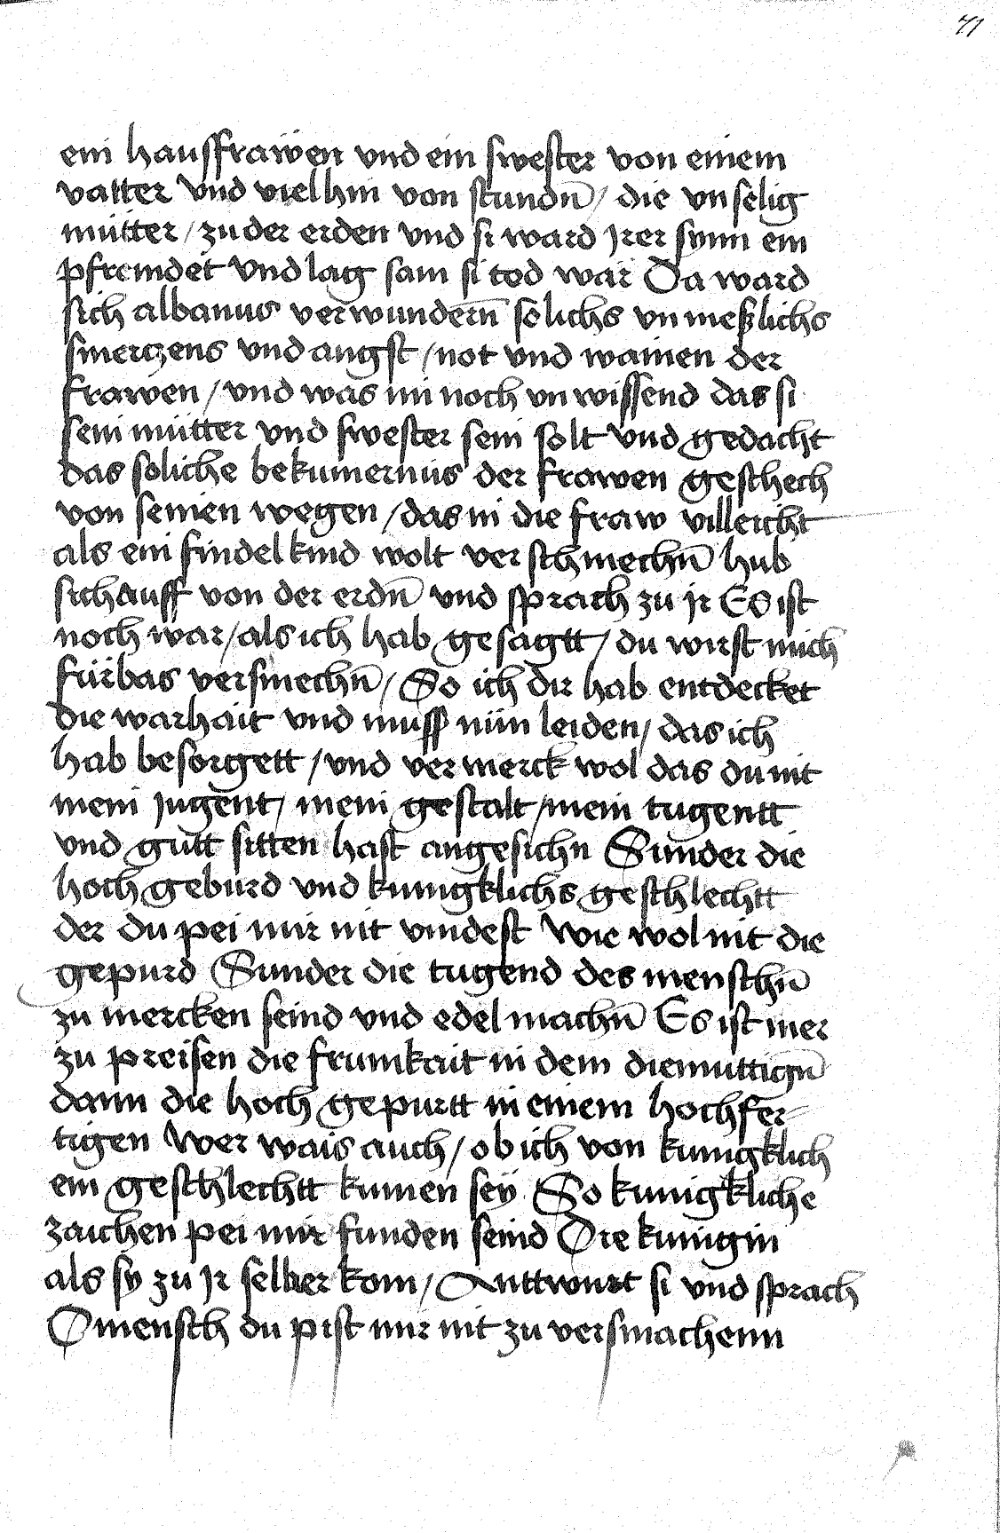 71
ein hauſfrawen vnd ein ſweſter von einem
vatter Vnd viel hin von ſtundn̄ / die vnſelig
mütter / zu der erden vnd ſi ward jrer ſynn em
pfremdet Vnd lag ſam ſi tod wär Da ward
ſich albanus verwundern̄ ſolichs vnmeßlichs
ſmerczens vnd angſt / not vnd wainen der
frawen / vnd was im noch vnwiſſend das ſi
ſein mütter vnd ſweſter ſein ſolt Vnd gedacht
das ſoliche bekumernüs der frawen geſchech
von ſeinen wegen / das in die fraw villeicht
als ein findelkind wolt verſchmechn̄ hub
ſich auff von der erdn̄ vnd ſprach zu jr Es iſt
noch war / als ich hab geſagtt / du wirſt mich
fürbas verſmechn̄ / So ich dir hab entdecket
die warhait vnd muſſ nün leiden / das ich
hab beſorgett / vnd vermerck wol das du nit
mein jugent / mein geſtalt / mein tugentt
vnd gutt ſitten haſt angeſichn Sunder die
hoch geburd vnd kunigklichs geſchlechtt
der du pei mir nit vindeſt Wie wol nit die
gepurd Sunder die tugend des menſchn̄
zu mercken ſeind vnd edel machn̄ Es iſt mer
zu preiſen die frumkait in dem diemuttign̄
dann die hoch gepurtt in einem hochfer-
tigen Wer wais auch / ob ich von kunigklich
em geſchlechtt kumen ſeÿ So kunigkliche
zaichen pei mir funden ſeind Die kunigin
als ſy zu jr ſelber kom / Anttwurt ſi vnd ſprach
O menſch du piſt mir nit zu verſmachenn